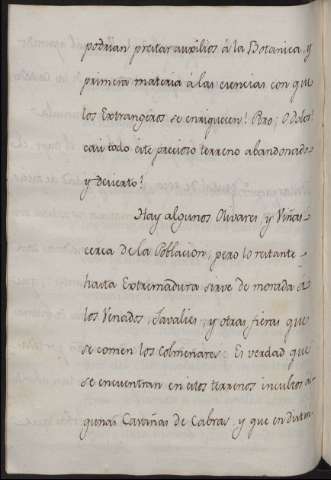 podrian prestar auxilios á la Botanica, y
primera materia á las ciencias con que
los Extrangeros se enriquecen! Pero, O dolor!
casi todo este precioso terreno abandonado
y desierto!
Hay algunos Olivares, y Viñas
cerca de la Poblacion; pero lo restante
hasta Extremadura sirve de morada á
los Venados, Javalies, y otras fieras que
se comen los Colmenares: Es verdad que
se encuentran en estos terrenos incultos al
gunas Casiñas de Cabras, y que en distin